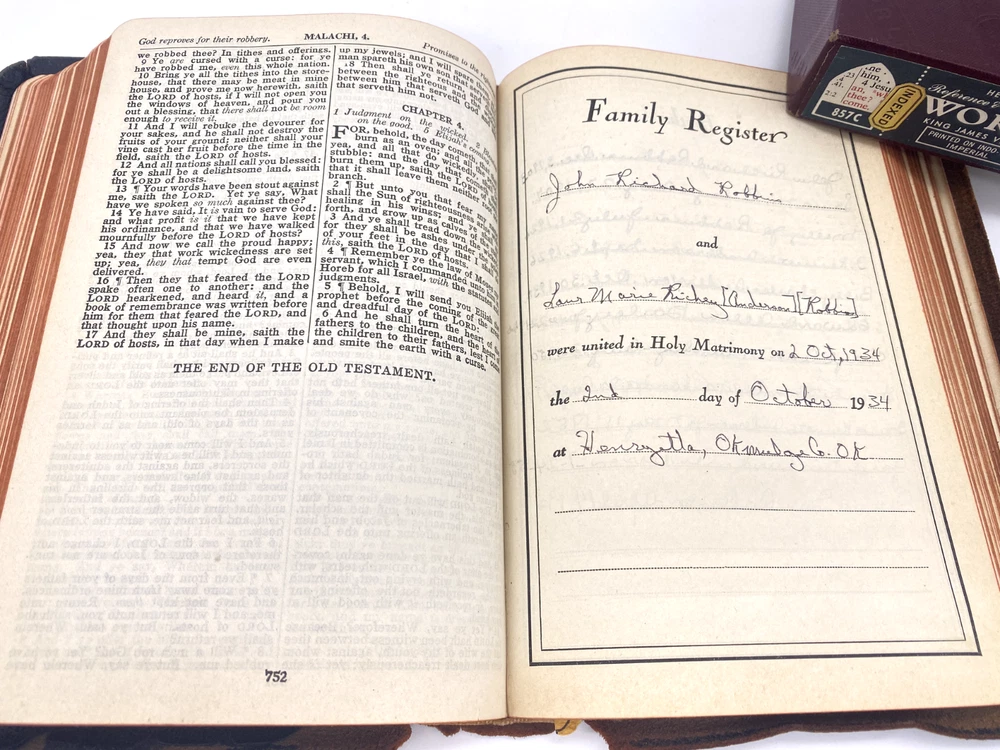 God reproves for their robbery.
MALACHI, 4.
Promises to the
we robbed thee? In tithes and offerings.
9 Ye are cursed with a curse: for ye
have robbed me, even this whole nation.
10 Bring ye all the tithes into the store-
house, that there may be meat in mine
house, and prove me now herewith, saith
the LORD of hosts, if I will not open you
the windows of heaven, and pour you
out a blessing, that there shall not be room
enough to receive it.
11 And I will rebuke the devourer for
your sakes, and he shall not destroy the
fruits of your ground; neither shall your
vine cast her fruit before the time in the
field, saith the LORD of hosts.
12 And all nations shall call you blessed:
for ye shall be a delightsome land, saith
the LORD of hosts.
13 ¶ Your words have been stout against
me, saith the LORD. Yet ye say, What
have we spoken so much against thee?
14 Ye have said, It is vain to serve God:
and what profit is it that we have kept
his ordinance, and that we have walked
mournfully before the LORD of hosts?
15 And now we call the proud happy;
yea, they that work wickedness are set
up; yea, they that tempt God are even
delivered.
16 ¶ Then they that feared the LORD
spake often one to another: and the
LORD hearkened, and heard it, and a
book of remembrance was written before
him for them that feared the LORD, and
that thought upon his name.
17 And they shall be mine, saith the
LORD of hosts, in that day when I make
up my jewels; and I will spare
man spareth his own son that
8 Then shall ye return,
between the righteous and
between him that serveth God
that serveth him not.
CHAPTER 4.
1 Judgment on the wicked,
on the good. 5 Elijah's
FOR, behold, the day cometh,
burn as an oven; and all
yea, and all that do wickedly,
stubble: and the day that cometh
burn them up, saith the LORD
that it shall leave them neither
branch.
2 ¶ But unto you that fear my
shall the Sun of righteousness
healing in his wings; and ye
forth, and grow up as calves of the
3 And ye shall tread down the
for they shall be ashes under the
of your feet in the day that I shall
this, saith the LORD of hosts.
4 ¶ Remember ye the law of Moses
servant, which I commanded unto
Horeb for all Israel, with the statutes
judgments.
5 ¶ Behold, I will send you Elijah
prophet before the coming of the
and dreadful day of the LORD:
6 And he shall turn the heart of the
fathers to the children, and the
the children to their fathers, lest I come
and smite the earth with a curse.
THE END OF THE OLD TESTAMENT.
752
Family Register
John Richard Robbins
and
Laur Marie Richey [Anderson] [Robbins]
were united in Holy Matrimony on 2 Oct, 1934
the 2nd day of October 1934
at Henryetta, Okmulgee Co. OK
him,
Jesu
thee?
come.
857C
INDEXED
Reference
WO
KING JAMES
PRINTED ON INDO
IMPERIAL